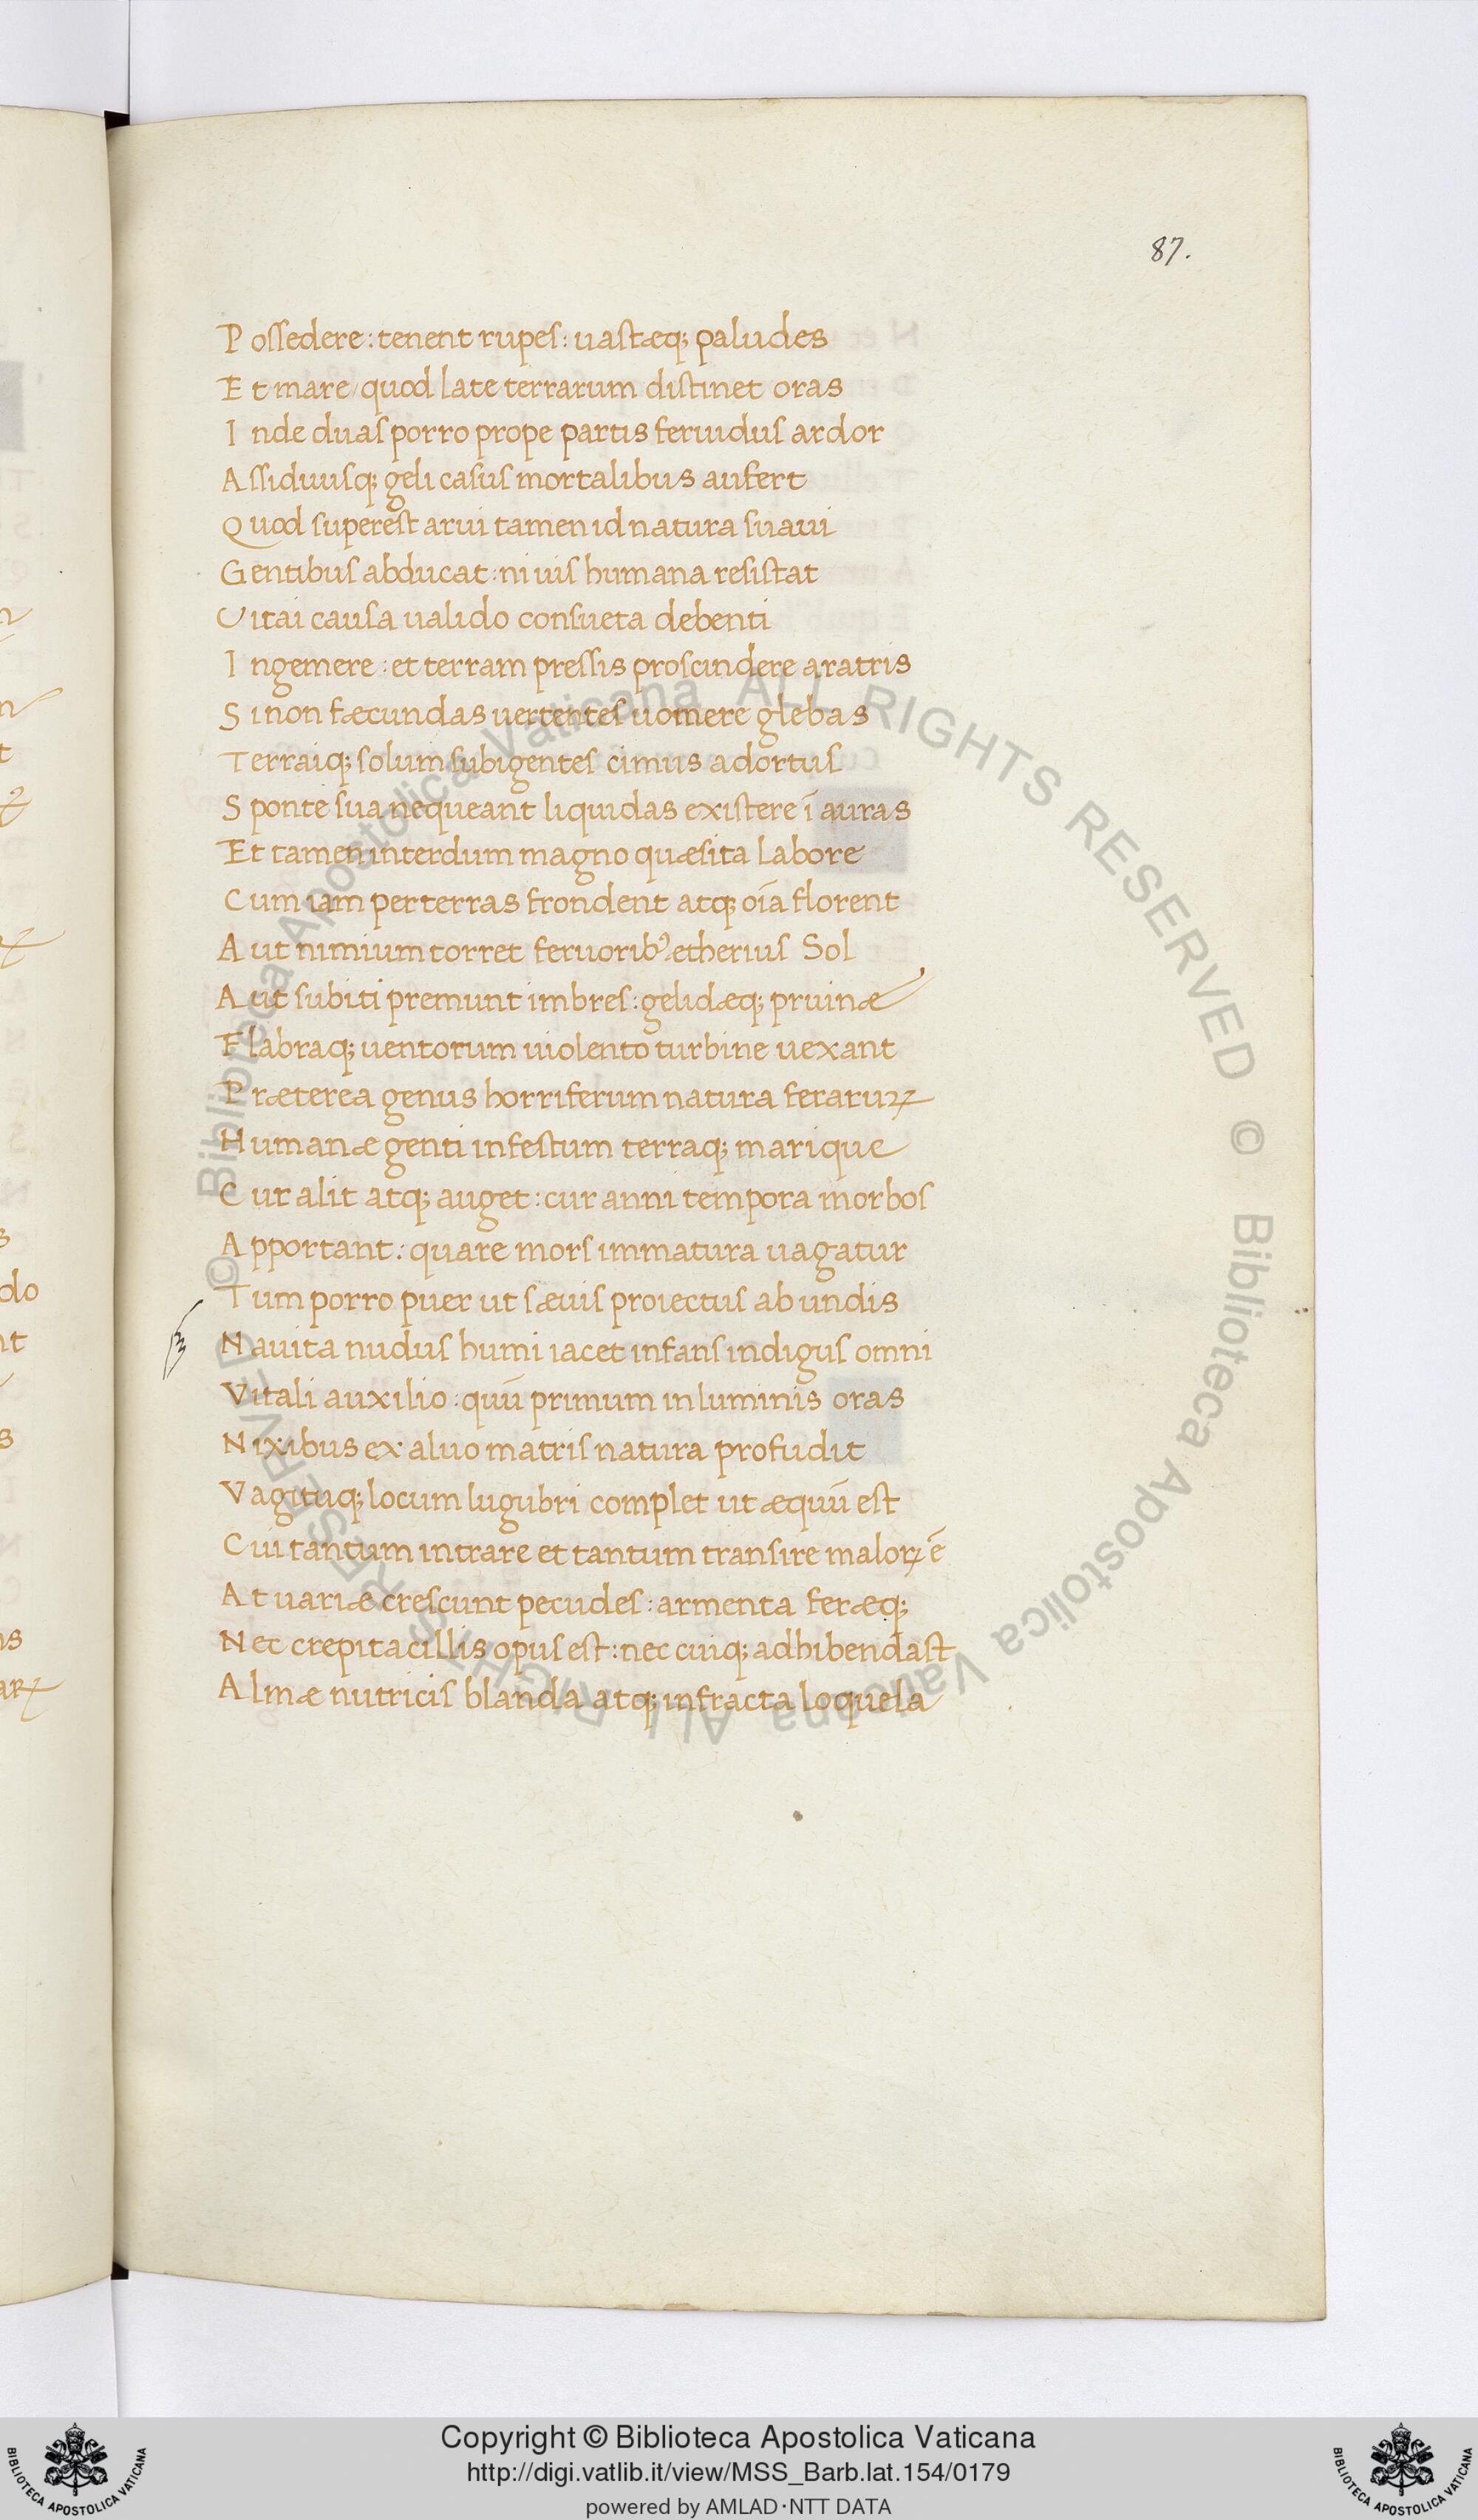 87.
Possedere: tenent rupes: uastæq; paludes
Et mare/ quod late terrarum distinet oras
Inde duas porro prope partis feruidus ardor
Assiduusq; geli casus mortalibus aufert
Quod superest arui tamen id natura suaui
Gentibus abducat: ni uis humana resistat
Vitai causa ualido consueta debenti
Ingemere: et terram pressis proscindere aratris
Si non fæcundas uertentes uomere glebas
Terraiq; solum subigentes cimus adortus
Sponte sua nequeant liquidas existere ī auras
Et tamen interdum magno quæsita labore
Cum iam per terras frondent atq; oīa florent
Aut nimium torret feruoribꝰ etherius Sol
Aut subiti premunt imbres: gelidæq; pruinæ
Flabraq; uentorum uiolento turbine uexant
Præterea genus horriferum natura feraruꝝ
Humanæ genti infestum terraq; marique
Cur alit atq; auget: cur anni tempora morbos
Apportant: quare mors immatura uagatur
Tum porro puer ut sæuis proiectus ab undis
Nauita nudus humi iacet infans indigus omni
Vitali auxilio: quū primum in luminis oras
Nixibus ex aluo matris natura profudit
Vagituq; locum lugubri complet ut æquū est
Cui tantum intrare et tantum transire maloꝝ ē
At uariæ crescunt pecudes: armenta feræq;
Nec crepitacillis opus est: nec cuiq; adhibendast
Almæ nutricis blanda atq; infracta loquela
© Biblioteca Apostolica Vaticana ALL RIGHTS RESERVED
© Biblioteca Apostolica Vaticana ALL RIGHTS RESERVED
Copyright © Biblioteca Apostolica Vaticana
http://digi.vatlib.it/view/MSS_Barb.lat.154/0179
powered by AMLAD·NTT DATA
BIBLIOTECA APOSTOLICA VATICANA
BIBLIOTECA APOSTOLICA VATICANA